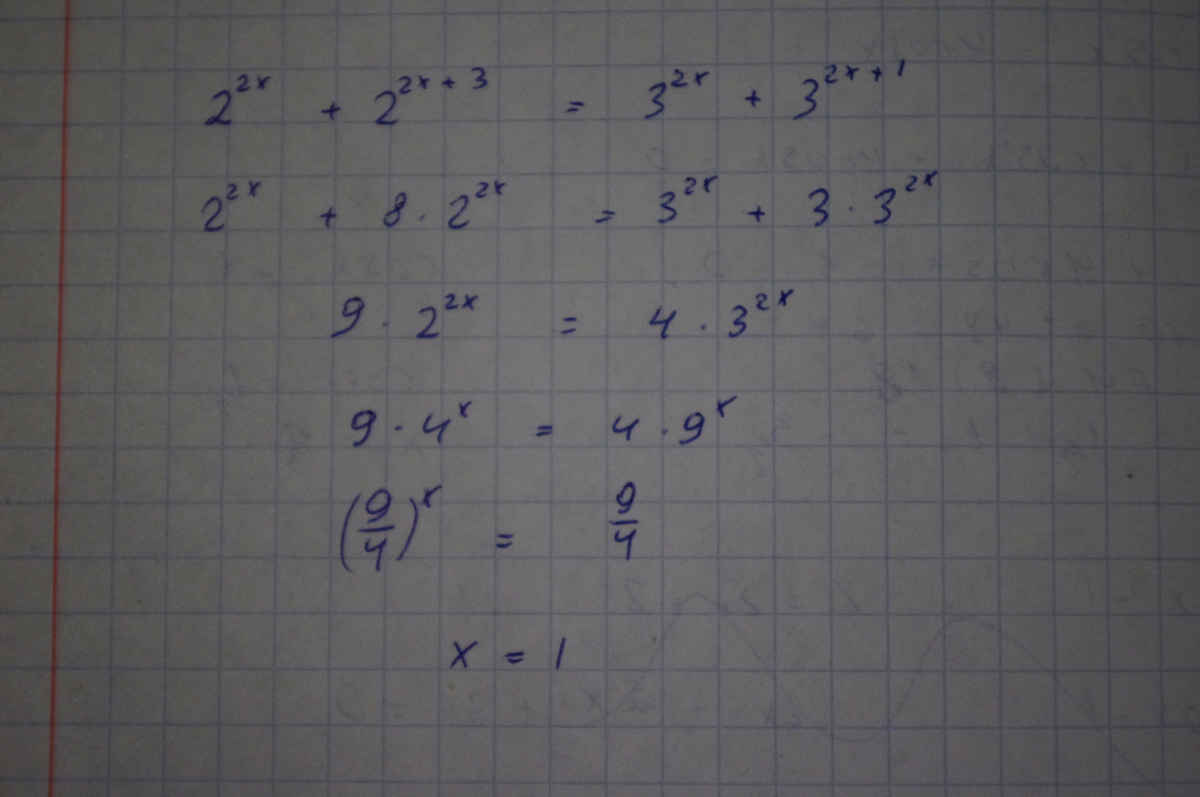 2^{2x} + 2^{2x+3} = 3^{2x} + 3^{2x+1}
2^{2x} + 8 · 2^{2x} = 3^{2x} + 3 · 3^{2x}
9 · 2^{2x} = 4 · 3^{2x}
9 · 4^x = 4 · 9^x
(9/4)^x = 9/4
x = 1